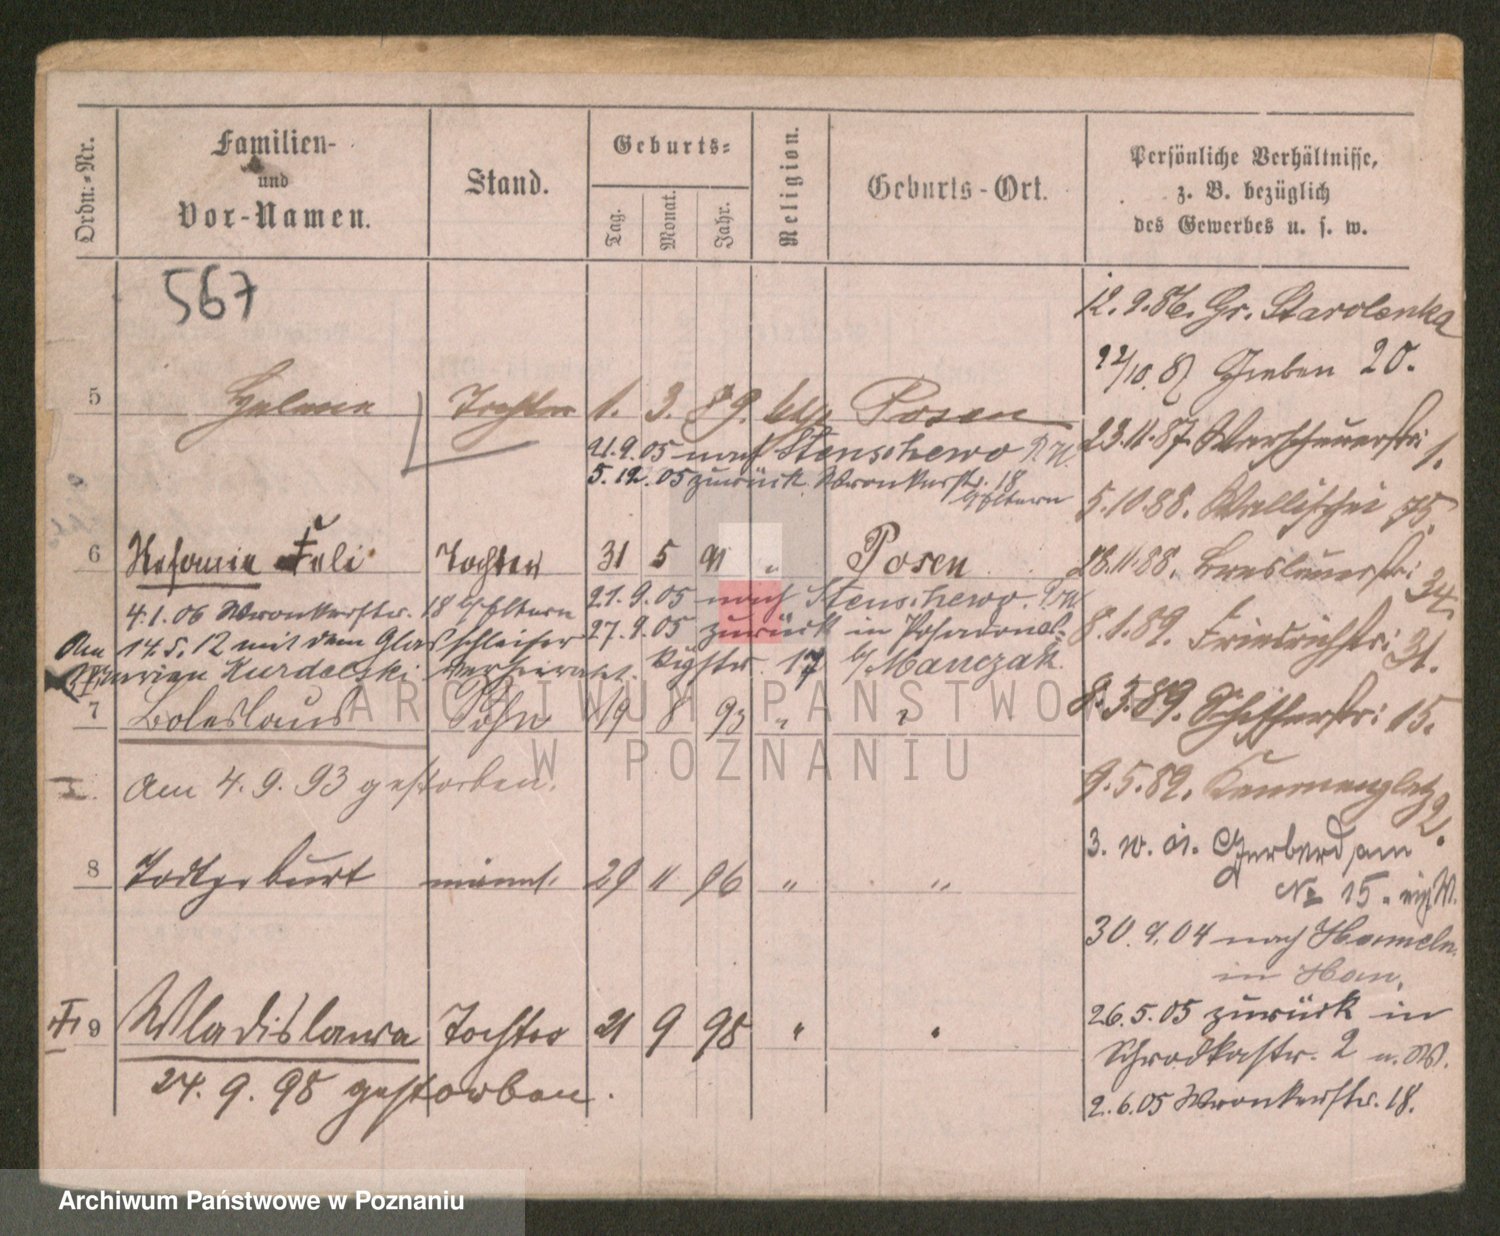 Ordn.-Nr.
Familien-
und
Vor-Namen.
Stand.
Geburts-
Tag.
Monat.
Jahr.
Religion.
Geburts-Ort.
Persönliche Verhältnisse,
z. B. bezüglich
des Gewerbes u. s. w.
567
5 Helene Tochter 1. 3. 89. Posen
21.9.05 nach Stenschewo
5.12.05 zurück Wronkerstr. 18
b/Eltern
6 Feli Tochter 31 5 91 " Posen
4.1.06 Wronkerstr. 18 b/Eltern 21.9.05 nach Stenschewo.
Am 14.5.12 mit dem Glasschleifer 27.9.05 zurück in
Kurdelski verheiratet. 17 b/Manczak.
7 Boleslaus Sohn 19 8 93 " "
am 4.9.93 gestorben.
8 Todtgeburt männl. 29 11 96 " "
9 Wladislawa Tochter 21 9 98 " "
24.9.98 gestorben.
12.9.86. Gr. Starolenka
22/10.87 20.
23.11.87 1.
5.10.88. Wallischei 75.
28.11.88. Breslauerstr: 34.
8.1.89. Friedrichstr: 31.
8.3.89. Schifferstr: 15.
9.5.89. 2.
3. 01. Gerberdamm
No 15.
30.9.04 nach Hameln
in Han.
26.5.05 zurück in
Schrodkastr. 2
2.6.05 Wronkerstr. 18.
ARCHIWUM PAŃSTWOWE
W POZNANIU
Archiwum Państwowe w Poznaniu